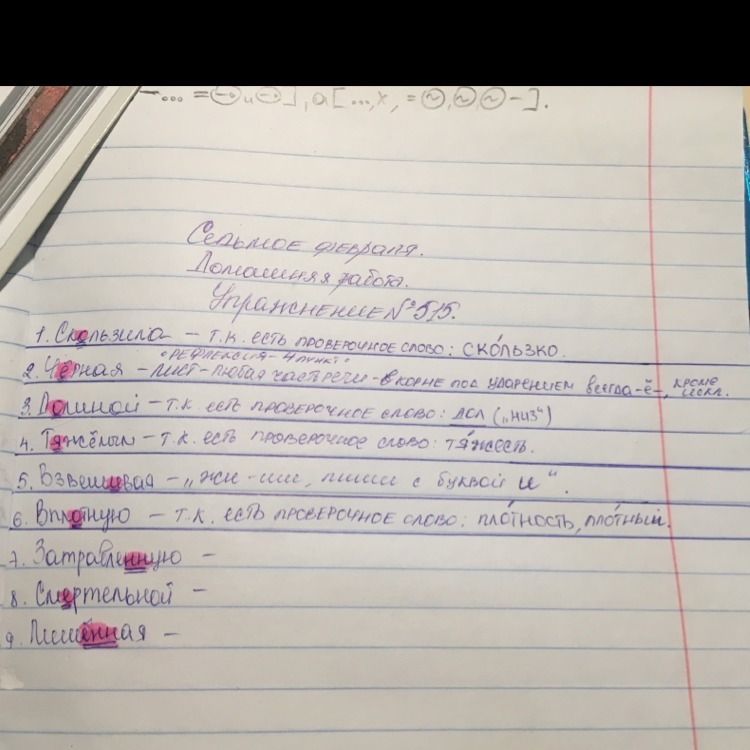 –... = и ], а [ ..., х, = –].
Седьмое февраля.
Домашняя работа.
Упражнение №515.
1. Скользила – т.к. есть проверочное слово: ско́льзко.
"рефлексия – 4 пункт"
2. Чёрная – лист – любая часть речи – в корне под ударением всегда -ё-, кроме искл.
3. Долиной – т.к. есть проверочное слово: дол („низ“)
4. Тяжёлым – т.к. есть проверочное слово: тя́жесть.
5. Взвешивая – „жи – ши, пиши с буквой и“.
6. Вплотную – т.к. есть проверочное слово: пло́тность, пло́тный.
7. Затравленную –
8. Смертельной –
9. Лишённая –